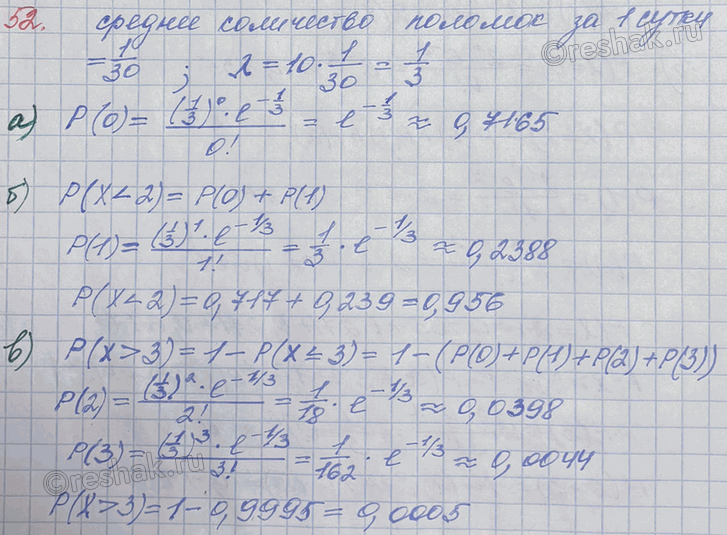 52. среднее количество поломок за 1 сутку
= 1/30 ; λ = 10 · 1/30 = 1/3
а) P(0) = ((1/3)⁰ · e^(-1/3))/0! = e^(-1/3) ≈ 0,7165
б) P(X < 2) = P(0) + P(1)
P(1) = ((1/3)¹ · e^(-1/3))/1! = 1/3 · e^(-1/3) ≈ 0,2388
P(X < 2) = 0,717 + 0,239 = 0,956
в) P(X > 3) = 1 - P(X ≤ 3) = 1 - (P(0) + P(1) + P(2) + P(3))
P(2) = ((1/3)² · e^(-1/3))/2! = 1/18 · e^(-1/3) ≈ 0,0398
P(3) = ((1/3)³ · e^(-1/3))/3! = 1/162 · e^(-1/3) ≈ 0,0044
P(X > 3) = 1 - 0,9995 = 0,0005
©reshak.ru
©reshak.ru
©reshak.ru
©reshak.ru